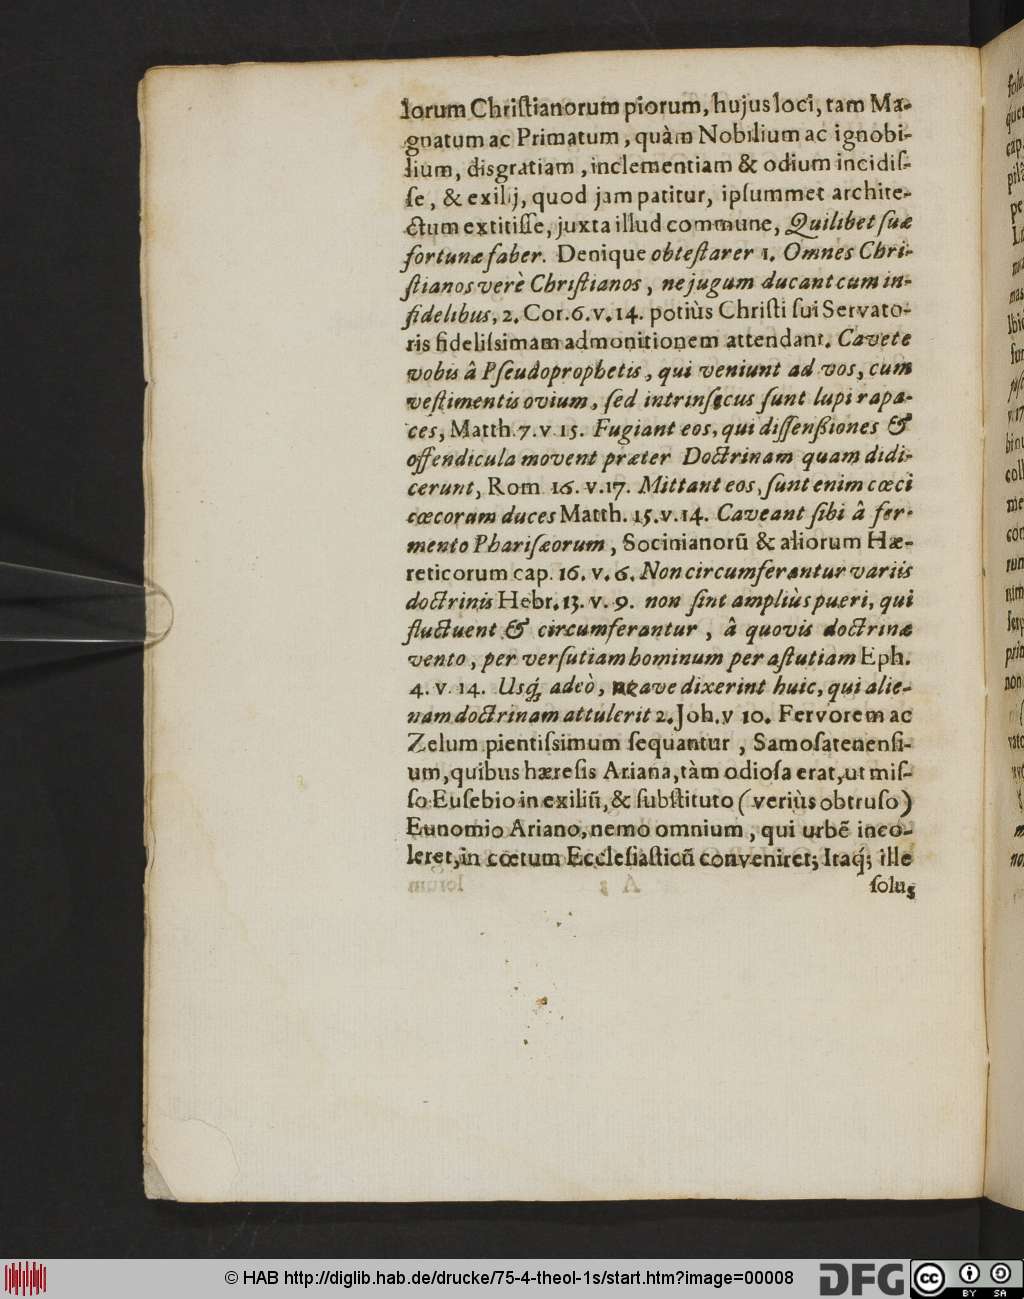 lorum Chriſtianorum piorum, hujus loci, tam Ma-
gnatum ac Primatum, quàm Nobilium ac ignobi-
lium, diſgratiam, inclementiam & odium incidiſ-
ſe, & exilij, quod jam patitur, ipſummet archite-
ctum extitiſſe, juxta illud commune, Quilibet ſuæ
fortunæ faber. Denique obteſtarer 1. Omnes Chri-
ſtianos verè Chriſtianos, ne jugum ducant cum in-
fidelibus, 2. Cor. 6. v. 14. potiùs Chriſti ſui Servato-
ris fideliſsimam admonitionem attendant. Cavete
vobis â Pſeudoprophetis, qui veniunt ad vos, cum
veſtimentis ovium, ſed intrinſecus ſunt lupi rapa-
ces, Matth. 7. v. 15. Fugiant eos, qui diſſenſiones &
offendicula movent præter Doctrinam quam didi-
cerunt, Rom 16. v. 17. Mittant eos, ſunt enim cœci
cœcorum duces Matth. 15. v. 14. Caveant ſibi â fer-
mento Phariſæorum, Socinianorũ & aliorum Hæ-
reticorum cap. 16. v. 6. Non circumferantur variis
doctrinis Hebr. 13. v. 9. non ſint ampliùs pueri, qui
fluctuent & circumferantur, â quovis doctrinæ
vento, per verſutiam hominum per aſtutiam Eph.
4. v. 14. Uſq́; adeò, ne ave dixerint huic, qui alie-
nam doctrinam attulerit 2. Joh. v 10. Fervorem ac
Zelum pientiſsimum ſequantur, Samoſatenenſi-
um, quibus hæreſis Ariana, tàm odioſa erat, ut miſ-
ſo Euſebio in exiliũ, & ſubſtituto (veriùs obtruſo)
Eunomio Ariano, nemo omnium, qui urbẽ inco-
leret, in cœtum Eccleſiaſticũ conveniret; Itaq́; ille
ſolus
© HAB http://diglib.hab.de/drucke/75-4-theol-1s/start.htm?image=00008
DFG
cc
BY SA